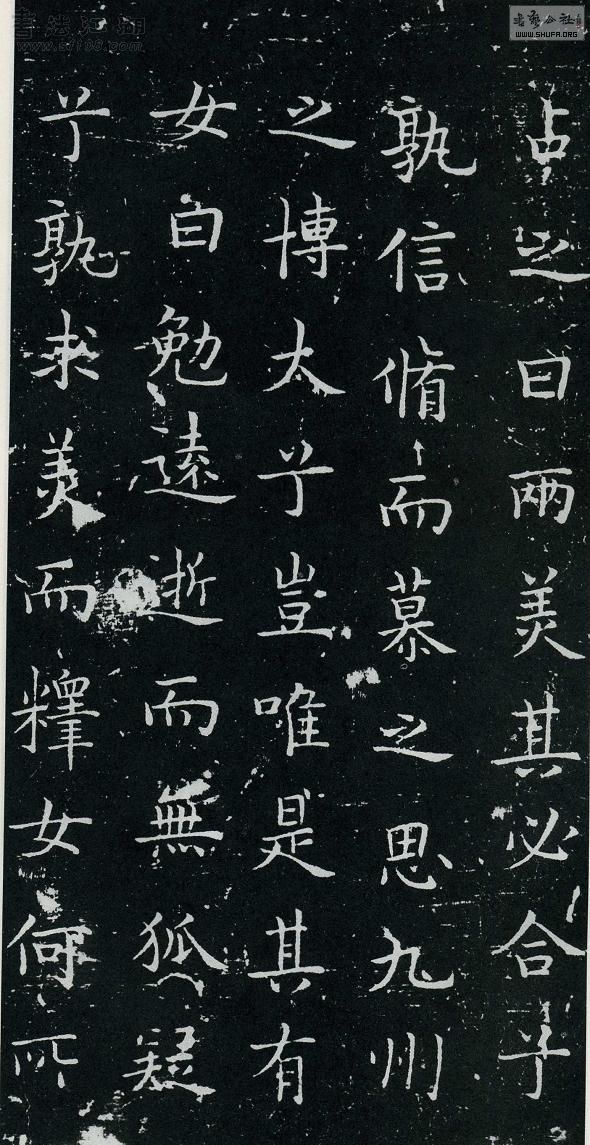 占之曰兩美其必合兮
孰信脩而慕之思九州
之博太兮豈唯是其有
女曰勉遠逝而無狐疑
兮孰求美而釋女何所
書法江湖
書藝公社
WWW.SHUFA.ORG